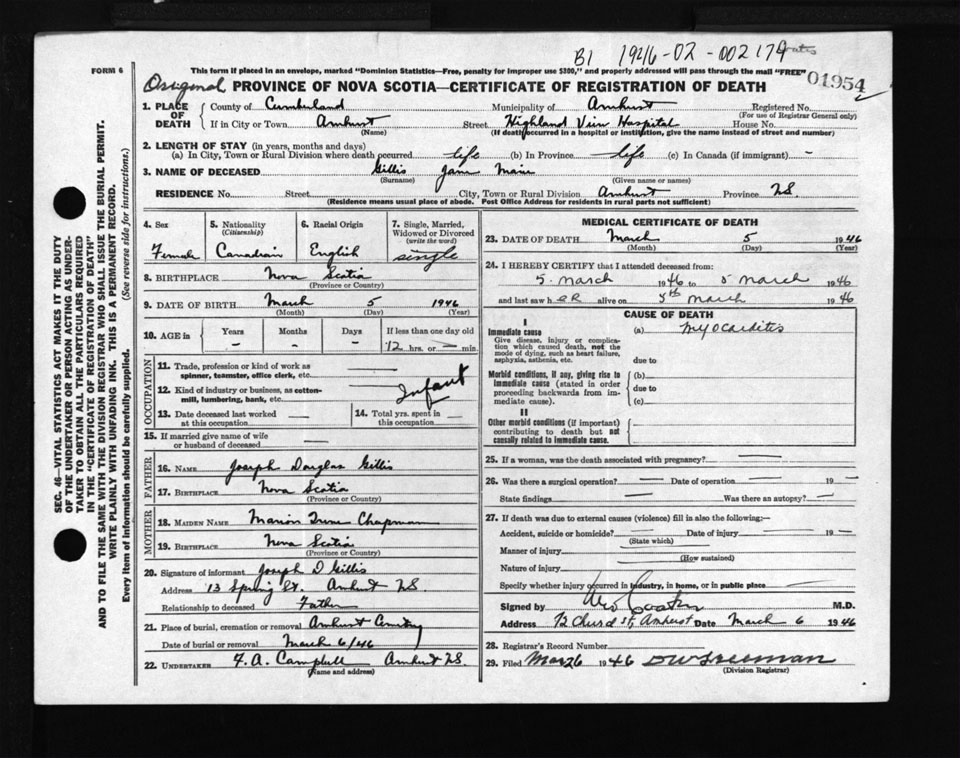 B1 1946-02-002179
FORM 6
This form if placed in an envelope, marked "Dominion Statistics—Free, penalty for improper use $300," and properly addressed will pass through the mail "FREE"
01954
Original PROVINCE OF NOVA SCOTIA—CERTIFICATE OF REGISTRATION OF DEATH
1. PLACE OF DEATH County of Cumberland Municipality of Amherst Registered No.
(For use of Registrar General only)
If in City or Town Amherst Street Highland View Hospital House No.
(Name) (If death occurred in a hospital or institution, give the name instead of street and number)
2. LENGTH OF STAY (in years, months and days)
(a) In City, Town or Rural Division where death occurred life (b) In Province life (c) In Canada (if immigrant) -
3. NAME OF DECEASED Gillis Jane Marie
(Surname) (Given name or names)
RESIDENCE No. Street City, Town or Rural Division Amherst Province N.S.
(Residence means usual place of abode. Post Office Address for residents in rural parts not sufficient)
4. Sex 5. Nationality (Citizenship) 6. Racial Origin 7. Single, Married, Widowed or Divorced (write the word)
Female Canadian English single
8. BIRTHPLACE Nova Scotia
(Province or Country)
9. DATE OF BIRTH March 5 1946
(Month) (Day) (Year)
10. AGE in Years Months Days If less than one day old
- - - 12 hrs. or — min.
OCCUPATION
11. Trade, profession or kind of work as spinner, teamster, office clerk, etc.
12. Kind of industry or business, as cotton-mill, lumbering, bank, etc. Infant
13. Date deceased last worked at this occupation — 14. Total yrs. spent in this occupation —
15. If married give name of wife or husband of deceased —
FATHER
16. NAME Joseph Douglas Gillis
17. BIRTHPLACE Nova Scotia
(Province or Country)
MOTHER
18. MAIDEN NAME Marion Irene Chapman
19. BIRTHPLACE Nova Scotia
(Province or Country)
20. Signature of informant Joseph D Gillis
Address 13 Spring St. Amherst N.S.
Relationship to deceased Father
21. Place of burial, cremation or removal Amherst Cemetery
Date of burial or removal March 6/46
22. UNDERTAKER F. A. Campbell Amherst N.S.
(Name and address)
MEDICAL CERTIFICATE OF DEATH
23. DATE OF DEATH March 5 1946
(Month) (Day) (Year)
24. I HEREBY CERTIFY that I attended deceased from:
5 March 1946 to 5 March 1946
and last saw her alive on 5th March 1946
CAUSE OF DEATH
I
Immediate cause (a) Myocarditis
Give disease, injury or complication which caused death, not the mode of dying, such as heart failure, asphyxia, asthenia, etc.
due to
Morbid conditions, if any, giving rise to immediate cause (stated in order proceeding backwards from immediate cause).
(b)
due to
(c)
II
Other morbid conditions (if important) contributing to death but not causally related to immediate cause.
25. If a woman, was the death associated with pregnancy? —
26. Was there a surgical operation? — Date of operation — 19 —
State findings — Was there an autopsy? —
27. If death was due to external causes (violence) fill in also the following:—
Accident, suicide or homicide? — Date of injury — 19 —
(State which)
Manner of injury
(How sustained)
Nature of injury
Specify whether injury occurred in industry, in home, or in public place —
Signed by M.D.
Address 72 Church St, Amherst Date March 6 1946
28. Registrar's Record Number
29. Filed Mar 26 1946
(Division Registrar)
SEC. 46—VITAL STATISTICS ACT MAKES IT THE DUTY
OF THE UNDERTAKER OR PERSON ACTING AS UNDER-
TAKER TO OBTAIN ALL THE PARTICULARS REQUIRED
IN THE "CERTIFICATE OF REGISTRATION OF DEATH"
AND TO FILE THE SAME WITH THE DIVISION REGISTRAR WHO SHALL ISSUE THE BURIAL PERMIT.
WRITE PLAINLY WITH UNFADING INK. THIS IS A PERMANENT RECORD.
Every item of information should be carefully supplied. (See reverse side for instructions.)